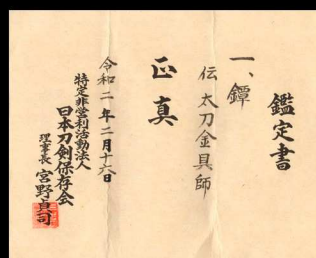 鑑定書
一、鐔
伝 太刀金具師
正真
令和二年二月十六日
特定非営利活動法人
日本刀剣保存会
理事長 宮野貞司